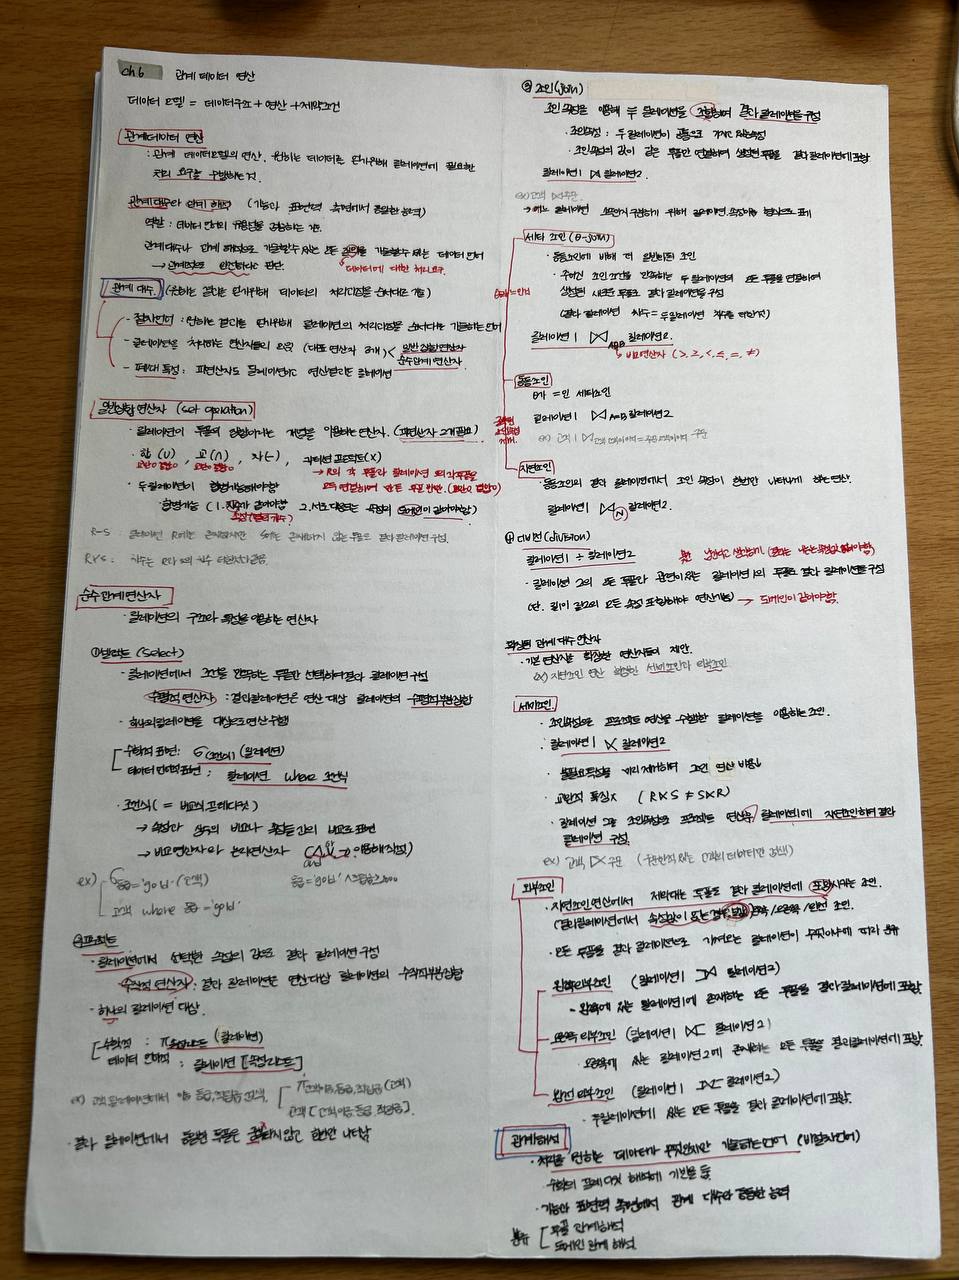 ch.6 관계 데이터 연산
데이터 모델 = 데이터구조 + 연산 + 제약조건
관계 데이터 연산
: 관계 데이터모델의 연산. 원하는 데이터를 얻기위해 릴레이션에 필요한
처리 요구를 수행하는 것.
관계 대수와 관계 해석 (기능과 표현력 측면에서 동일한 능력)
역할 : 데이터 언어의 유용성을 검증하는 기준
관계 대수나 관계 해석으로 기술할 수 있는 모든 질의를 기술할 수 있는 데이터 언어
→ 관계적으로 완전하다고 판단.
데이터에 대한 처리 요구.
관계 대수 (원하는 결과를 얻기위해 데이터의 처리과정을 순서대로 기술)
· 절차언어 : 원하는 결과를 얻기위해 릴레이션의 처리과정을 순서대로 기술하는 언어
· 릴레이션을 처리하는 연산자들의 모임 (대표 연산자 8개) < 일반 집합 연산자
순수관계 연산자
· 폐쇄 특성 : 피연산자도 릴레이션이고 연산결과도 릴레이션
일반집합 연산자 (set operation)
· 릴레이션이 투플의 집합이라는 개념을 이용하는 연산자. (피연산자 2개필요)
· 합 (∪) , 교 (∩) , 차(-) , 카티션 프로덕트(×)
→ R의 각 투플과 릴레이션 S의 각 투플을
모두 연결하여 만든 투플 반환.
· 두 릴레이션이 합병가능해야함
합병가능 ( 1. 차수가 같아야함 2. 서로 대응되는 속성의 도메인이 같아야함)
R-S : 릴레이션 R에는 존재하지만 S에는 존재하지 않는 투플로 결과 릴레이션 구성.
R×S : 차수는 R과 S의 차수 더한거와 같음.
순수 관계 연산자
· 릴레이션의 구조와 특성을 이용하는 연산자
① 셀렉트 (select)
· 릴레이션에서 조건을 만족하는 투플만 선택하여 결과 릴레이션 구성
수평적 연산자 : 결과릴레이션은 연산 대상 릴레이션의 수평적 부분집합
· 하나의 릴레이션을 대상으로 연산 수행
수학적 표현: σ조건식 (릴레이션)
데이터 언어적 표현 : 릴레이션 where 조건식
· 조건식 ( = 비교식, 프레디킷)
→ 속성과 상수의 비교나 속성들 간의 비교로 표현
→ 비교연산자와 논리연산자 (∧,∨,¬) 이용해 작성)
ex) σ등급='gold' (고객)
고객 where 등급='gold'
② 프로젝트
· 릴레이션에서 선택한 속성의 값으로 결과 릴레이션 구성
수직적 연산자 : 결과 릴레이션은 연산 대상 릴레이션의 수직적 부분집합
· 하나의 릴레이션 대상
수학적 : π속성리스트 (릴레이션)
데이터 언어적 : 릴레이션 [속성리스트]
ex) 고객 릴레이션에서 이름, 등급, 적립금 검색. π고객이름,등급,적립금 (고객)
고객 [고객이름, 등급, 적립금]
· 결과 릴레이션에서 동일한 투플은 중복되지 않고 한번만 나타남
③ 조인(join)
조인 속성을 이용해 두 릴레이션을 조합하여 결과 릴레이션을 구성
· 조인속성 : 두 릴레이션이 공통으로 가지고 있는 속성
· 조인속성의 값이 같은 투플만 연결하여 생성된 투플을 결과 릴레이션에 포함
릴레이션1 ⋈ 릴레이션2.
ex) 고객 ⋈ 주문
세타 조인 (θ-join)
· 동등조인에 비해 더 일반화된 조인
· 주어진 조인 조건을 만족하는 두 릴레이션의 모든 투플을 연결하여
생성된 새로운 투플로 결과 릴레이션을 구성
(결과 릴레이션 차수 = 두릴레이션 차수를 더한것)
릴레이션1 ⋈AθB 릴레이션2.
비교연산자 (>, ≥, <, ≤, =, ≠)
동등조인
θ가 = 인 세타조인
릴레이션1 ⋈A=B 릴레이션2
자연조인
· 동등조인의 결과 릴레이션에서 조인 속성이 한번만 나타나게 하는 연산.
릴레이션1 ⋈N 릴레이션2.
④ 디비전 (division)
릴레이션1 ÷ 릴레이션2
· 릴레이션 2의 모든 투플과 관련이 있는 릴레이션1의 투플로 결과 릴레이션을 구성
(단. 릴1이 릴2의 모든 속성 포함해야 연산가능) → 도메인이 같아야함.
확장된 관계 대수 연산자
· 기본 연산자를 확장한 연산자들이 제안.
ex) 자연조인 연산 확장한 세미조인과 외부조인
세미조인.
· 조인속성으로 프로젝트 연산을 수행한 릴레이션을 이용하는 조인.
· 릴레이션1 ⋉ 릴레이션2
· 불필요 속성을 미리 제거하여 조인 연산 비용↓
· 교환적 특징 X ( R⋉S ≠ S⋉R)
· 릴레이션 2를 조인속성으로 프로젝트 연산후 릴레이션1에 자연조인하여 결과
릴레이션 구성.
외부조인
· 자연조인 연산에서 제외되는 투플도 결과 릴레이션에 포함시키는 조인.
· 모든 투플을 결과 릴레이션으로 가져오는 릴레이션이 무엇이냐에 따라 분류
왼쪽외부조인 (릴레이션1 ⟕ 릴레이션2)
· 왼쪽에 있는 릴레이션1에 존재하는 모든 투플을 결과릴레이션에 포함.
오른쪽 외부조인 (릴레이션1 ⟖ 릴레이션2)
오른쪽에 있는 릴레이션2에 존재하는 모든 투플을 결과릴레이션에 포함.
완전 외부조인 (릴레이션1 ⟗ 릴레이션2)
· 두릴레이션에 있는 모든 투플을 결과 릴레이션에 포함.
관계 해석
· 처리를 원하는 데이터가 무엇인지만 기술하는 언어 (비절차언어)
수학의 프레디킷 해석에 기반을 둠.
· 기능과 표현력 측면에서 관계 대수와 동등한 능력
분류 투플 관계해석
도메인 관계 해석.